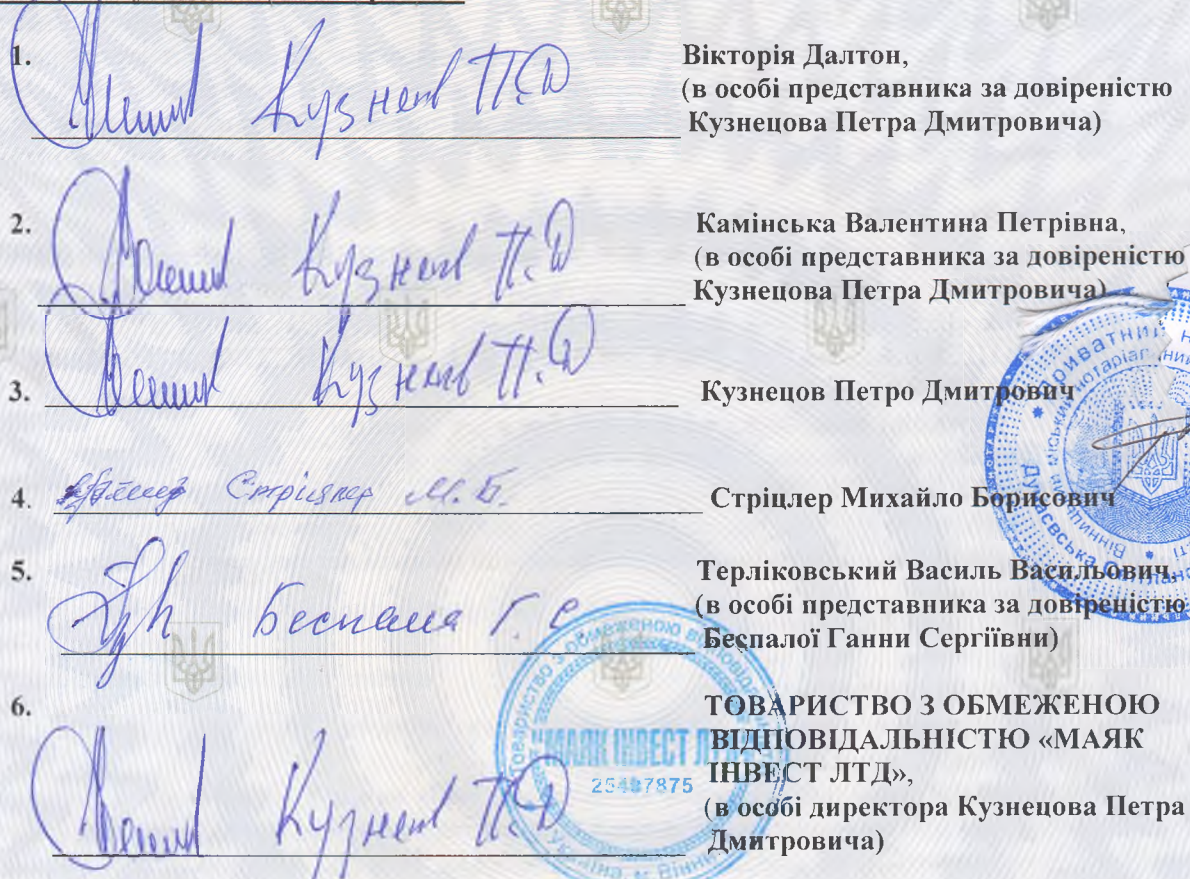 1. Кузнецов П.Д Вікторія Далтон,
(в особі представника за довіреністю
Кузнецова Петра Дмитровича)
2. Кузнецов П.Д Камінська Валентина Петрівна,
(в особі представника за довіреністю
Кузнецова Петра Дмитровича)
3. Кузнецов П.Д Кузнецов Петро Дмитрович
4. Стріцлер М.Б. Стріцлер Михайло Борисович
5. Беспала Г.С Терліковський Василь Васильович,
(в особі представника за довіреністю
Беспалої Ганни Сергіївни)
6. Кузнецов П.Д ТОВАРИСТВО З ОБМЕЖЕНОЮ
ВІДПОВІДАЛЬНІСТЮ «МАЯК
ІНВЕСТ ЛТД»,
(в особі директора Кузнецова Петра
Дмитровича)
"МАЯК ІНВЕСТ
25487875